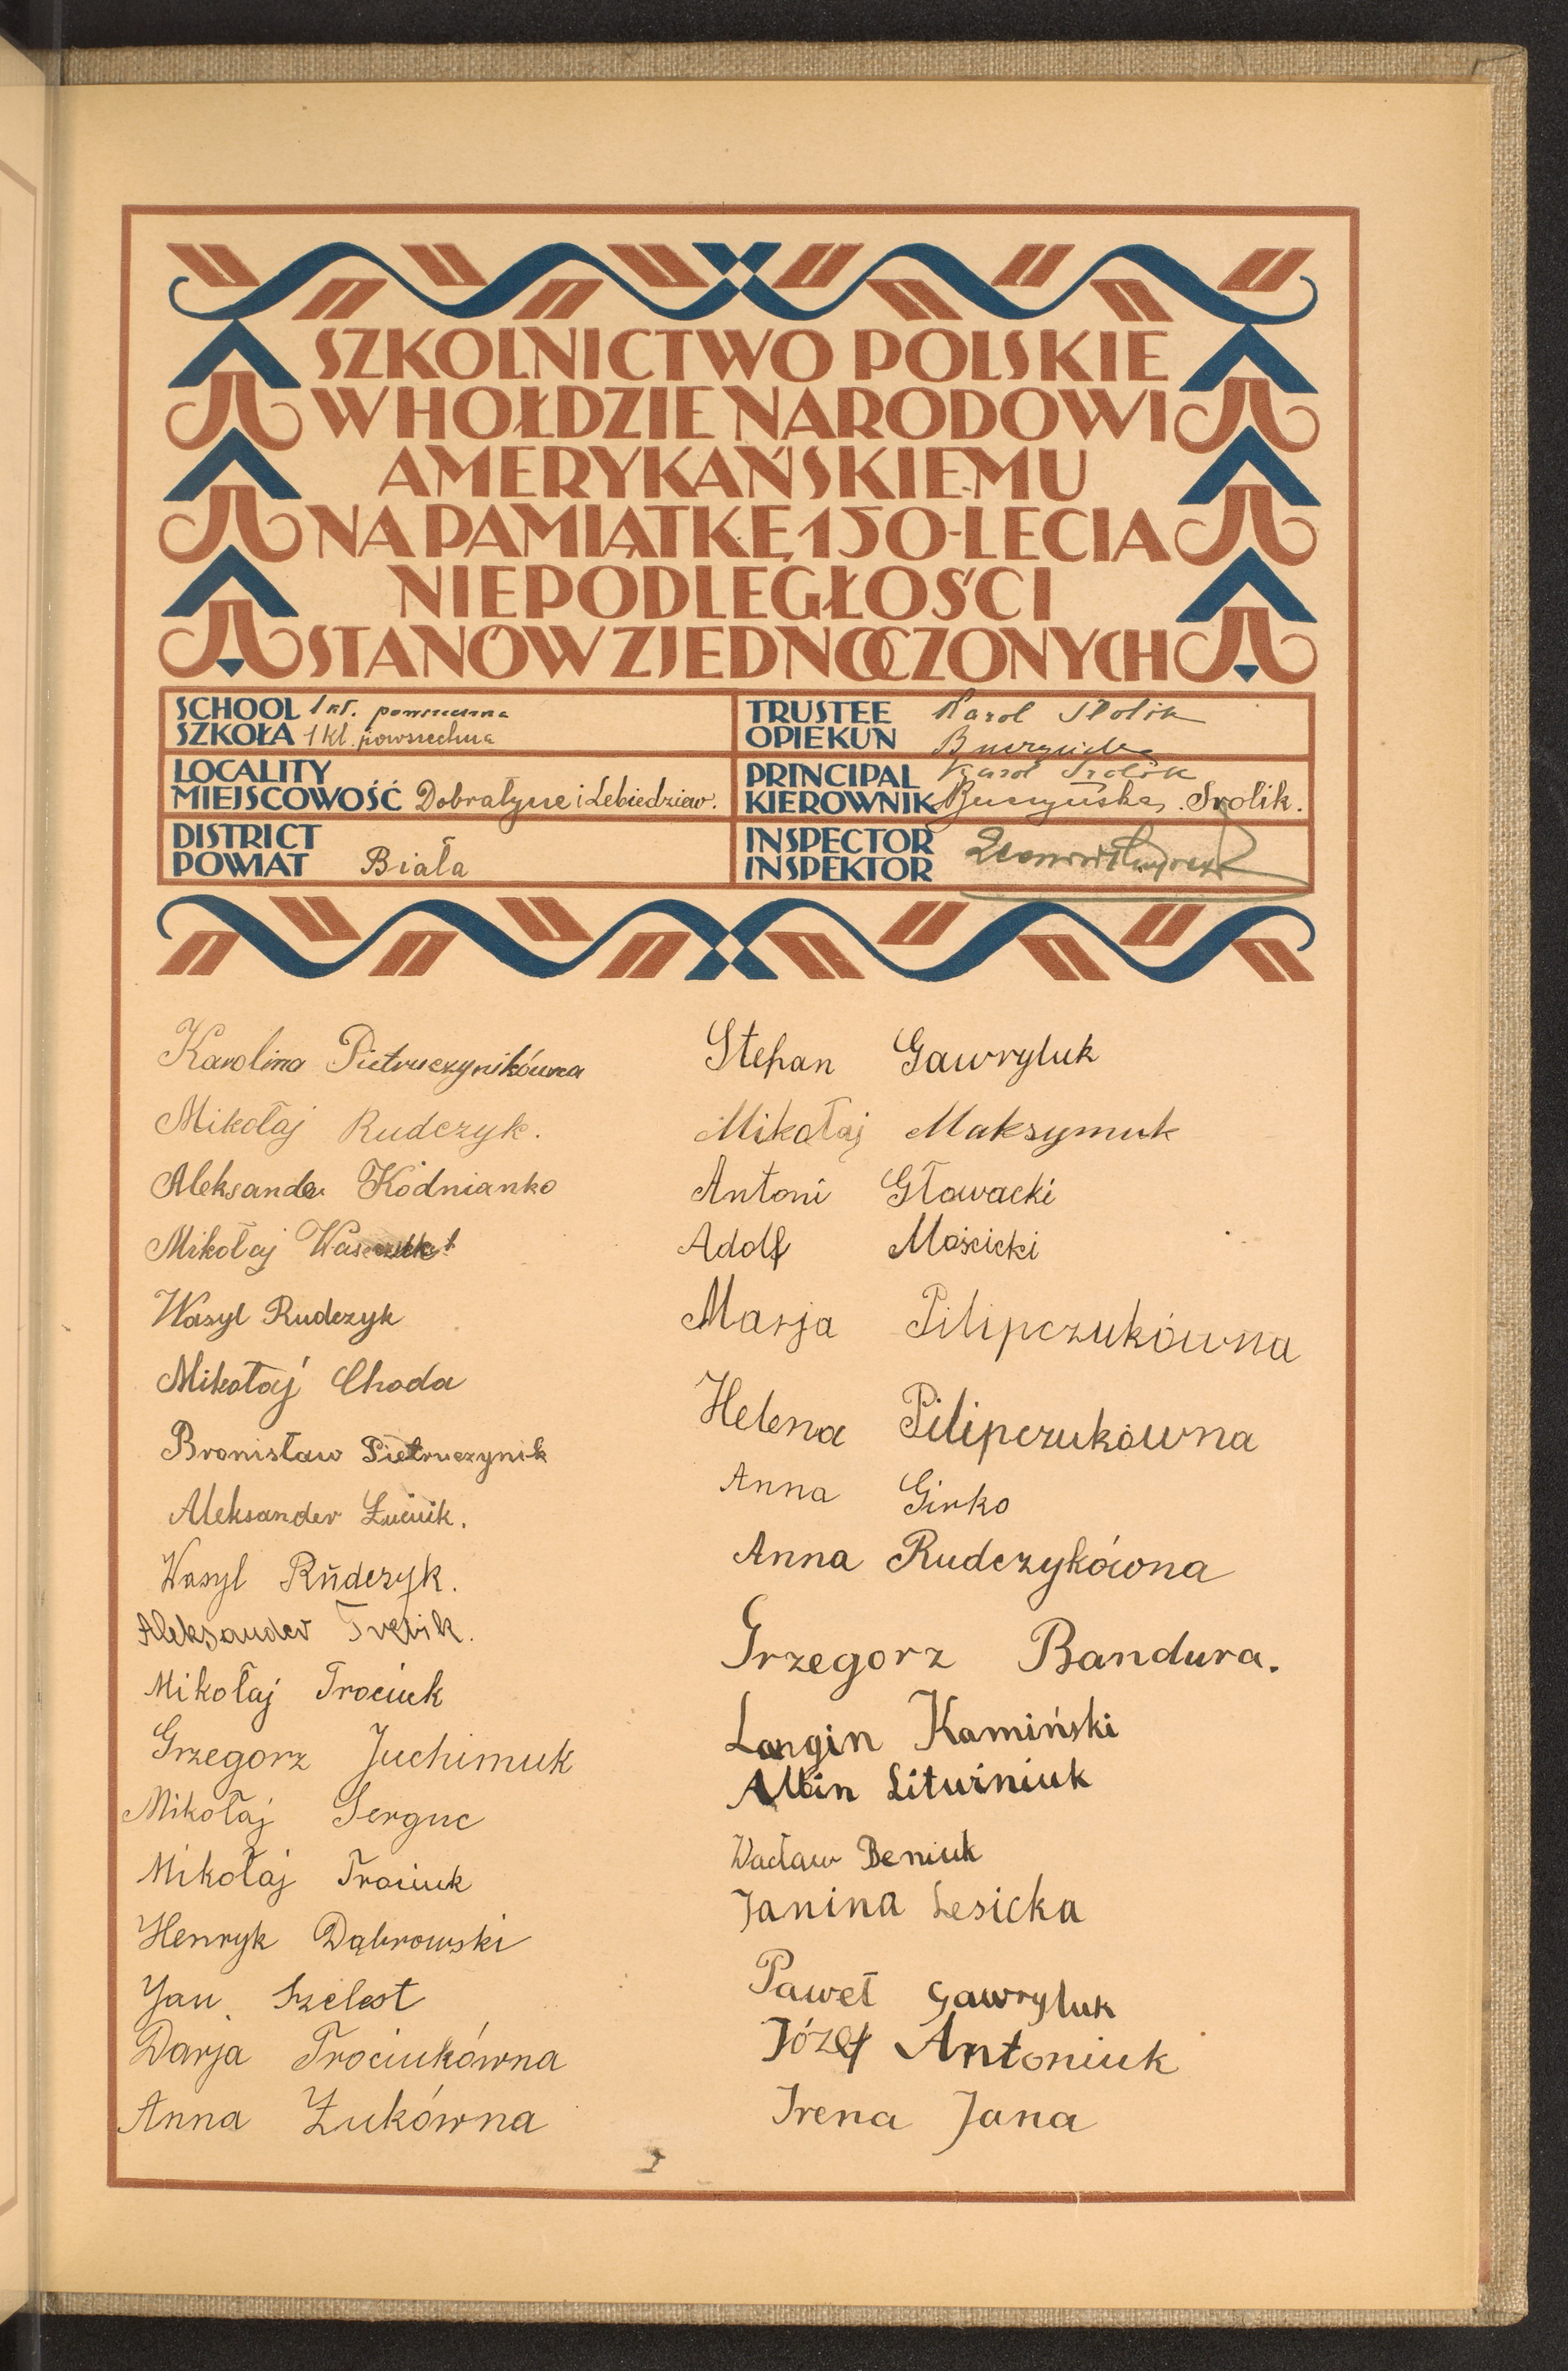 SZKOLNICTWO POLSKIE
W HOŁDZIE NARODOWI
AMERYKAŃSKIEMU
NA PAMIĄTKĘ 150-LECIA
NIEPODLEGŁOŚCI
STANÓW ZJEDNOCZONYCH
SCHOOL 1 kl. powszechna
SZKOŁA 1 kl. powszechna
LOCALITY
MIEJSCOWOŚĆ Dobratycze i Lebiedziew.
DISTRICT
POWIAT Biała
TRUSTEE Karol Srolik
OPIEKUN
PRINCIPAL Karol Srolik
KIEROWNIK Srolik.
INSPECTOR
INSPEKTOR
Karolina Pietruczynikówna
Mikołaj Rudczyk.
Aleksander Kodnianko
Mikołaj
Wasyl Rudczyk
Mikołaj Choda
Bronisław Pietruczynik
Aleksander
Wasyl Rudczyk.
Aleksander
Mikołaj Trociuk
Grzegorz Juchimuk
Mikołaj Serguc
Mikołaj Trociuk
Henryk Dąbrowski
Jan Szelest
Darja Trociukówna
Anna Żukówna
Stefan Gawryluk
Mikołaj Maksymuk
Antoni Głowacki
Adolf Mościcki
Marja Pilipczukówna
Helena Pilipczukówna
Anna Girko
Anna Rudczykówna
Grzegorz Bandura.
Longin Kamiński
Albin Litwiniuk
Wacław Beniuk
Janina Lesicka
Paweł Gawryluk
Józef Antoniuk
Irena Jana